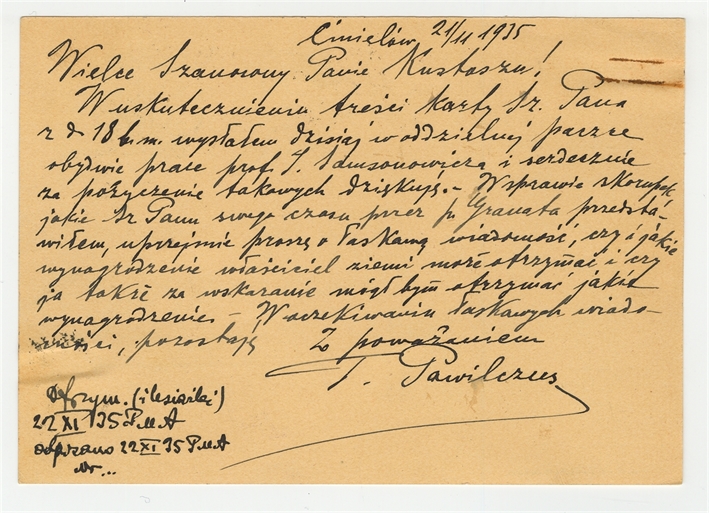 Ćmielów, 21/11 1935
Wielce Szanowny Panie Kustoszu!
W uskutecznieniu treści karty Sz. Pana
z d 18 b.m. wysłałem dzisiaj w oddzielnej paczce
obydwie prace prof. J. Samsonowicza i serdecznie
za pożyczenie takowych dziękuję.- W sprawie skorupek
jakie Sz Panu swego czasu przez p. Granata przedsta-
wiłem, uprzejmie proszę o łaskawą wiadomość, czy i jakie
wynagrodzenie właściciel ziemi może otrzymać i czy
ja także za wskazanie mógłbym otrzymać jakieś
wynagrodzenie - W oczekiwaniu łaskawych wiado-
mości, pozostaję
Z poważaniem
T. Pawilczus
Otrzym. (i książki)
22 XI 35 PMA
odpisano 22 XI 35 PMA
Nr...